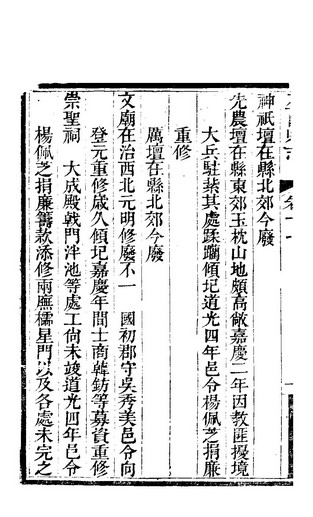 神祇壇在縣北郊今廢
先農壇在縣東郊玉枕山地頗高敞嘉慶二年因教匪擾境
大兵駐紮其處蹂躪傾圮道光四年邑令楊佩芝捐廉
重修
厲壇在縣北郊今廢
文廟在治西北元明修廢不一 國初郡守吳秀美邑令向
登元重修歲久傾圮嘉慶年間士商韓鈁等募資重修
崇聖祠 大成殿戟門泮池等處工尚未竣道光四年邑令
楊佩芝捐廉籌款添修兩廡櫺星門以及各處未完之